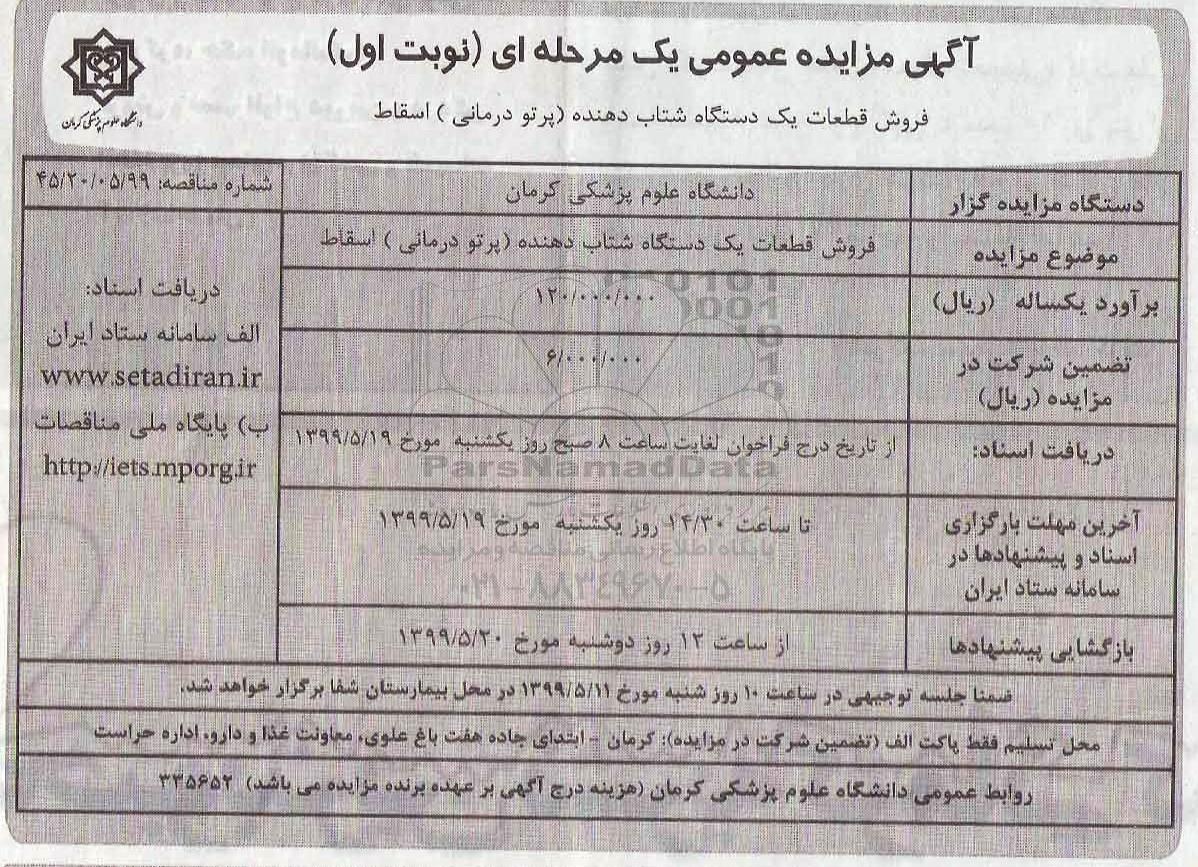 آگهی مزایده عمومی یک مرحله ای (نوبت اول)
فروش قطعات یک دستگاه شتاب دهنده (پرتو درمانی ) اسقاط
دانشگاه علوم پزشکی کرمان
دستگاه مزایده گزار
دانشگاه علوم پزشکی کرمان
شماره مناقصه: ۴۵/۲۰/۰۵/۹۹
موضوع مزایده
فروش قطعات یک دستگاه شتاب دهنده (پرتو درمانی ) اسقاط
برآورد یکساله (ریال)
۱۲۰/۰۰۰/۰۰۰
تضمین شرکت در
مزایده (ریال)
۶/۰۰۰/۰۰۰
دریافت اسناد:
از تاریخ درج فراخوان لغایت ساعت ۸ صبح روز یکشنبه مورخ ۱۳۹۹/۵/۱۹
آخرین مهلت بارگزاری
اسناد و پیشنهادها در
سامانه ستاد ایران
تا ساعت ۱۴/۳۰ روز یکشنبه مورخ ۱۳۹۹/۵/۱۹
بازگشایی پیشنهادها
از ساعت ۱۲ روز دوشنبه مورخ ۱۳۹۹/۵/۲۰
دریافت اسناد:
الف سامانه ستاد ایران
www.setadiran.ir
ب) پایگاه ملی مناقصات
http://iets.mporg.ir
ضمنا جلسه توجیهی در ساعت ۱۰ روز شنبه مورخ ۱۳۹۹/۵/۱۱ در محل بیمارستان شفا برگزار خواهد شد.
محل تسلیم فقط پاکت الف (تضمین شرکت در مزایده): کرمان - ابتدای جاده هفت باغ علوی، معاونت غذا و دارو، اداره حراست
روابط عمومی دانشگاه علوم پزشکی کرمان (هزینه درج آگهی بر عهده برنده مزایده می باشد) ۳۳۵۶۵۲
ParsNamadData
پایگاه اطلاع رسانی مناقصه و مزایده
۰۲۱-۸۸۳۴۹۶۷۰-۵